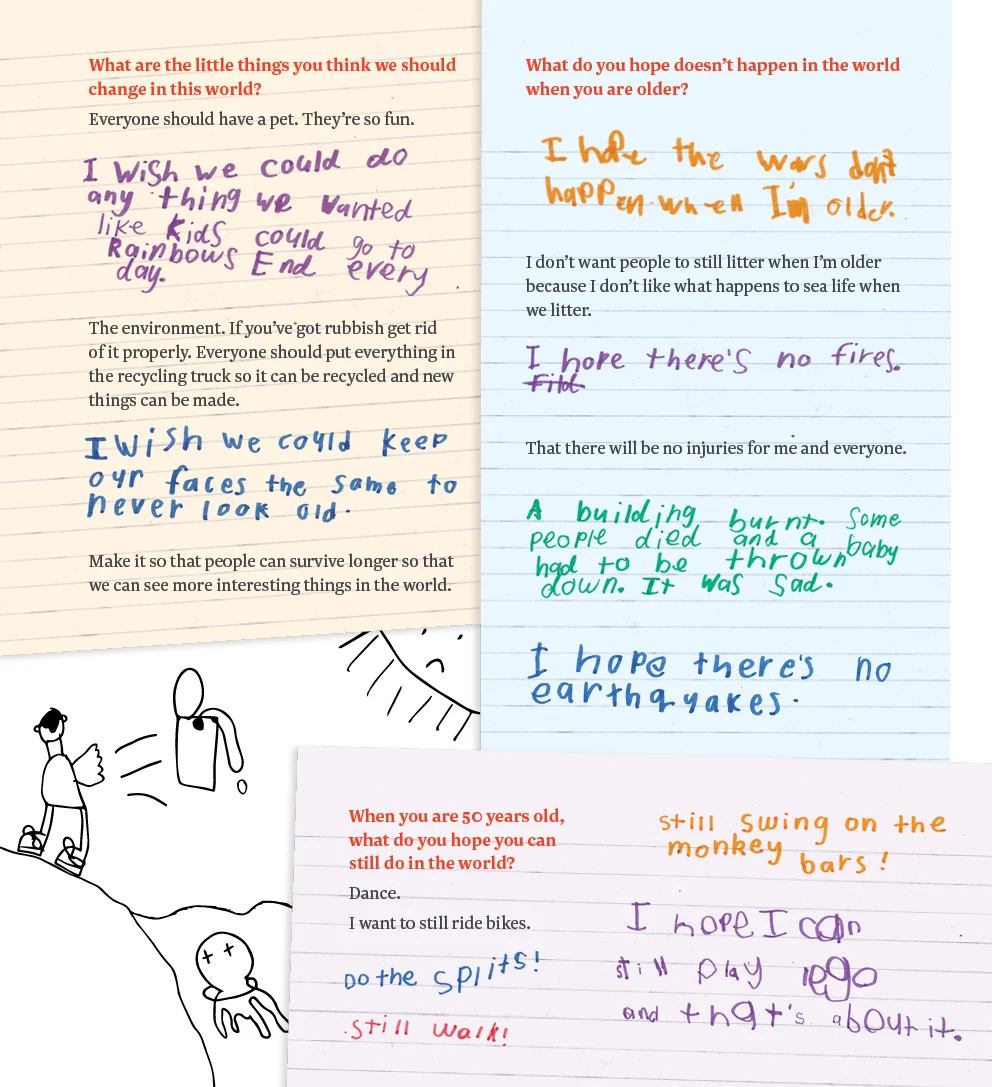 What are the little things you think we should
change in this world?
Everyone should have a pet. They're so fun.
I wish we could do
any thing we wanted
like kids could go to
Rainbows End every
day.
The environment. If you've got rubbish get rid
of it properly. Everyone should put everything in
the recycling truck so it can be recycled and new
things can be made.
I wish we could keep
our faces the same to
never look old.
Make it so that people can survive longer so that
we can see more interesting things in the world.
What do you hope doesn't happen in the world
when you are older?
I hope the wars don't
happen when I'm older.
I don't want people to still litter when I'm older
because I don't like what happens to sea life when
we litter.
I hope there's no fires.
That there will be no injuries for me and everyone.
A building burnt. Some
people died and a baby
had to be thrown
down. It was sad.
I hope there's no
earthquakes.
When you are 50 years old,
what do you hope you can
still do in the world?
Dance.
I want to still ride bikes.
Do the splits!
still walk!
still swing on the
monkey bars!
I hope I can
still play lego
and that's about it.